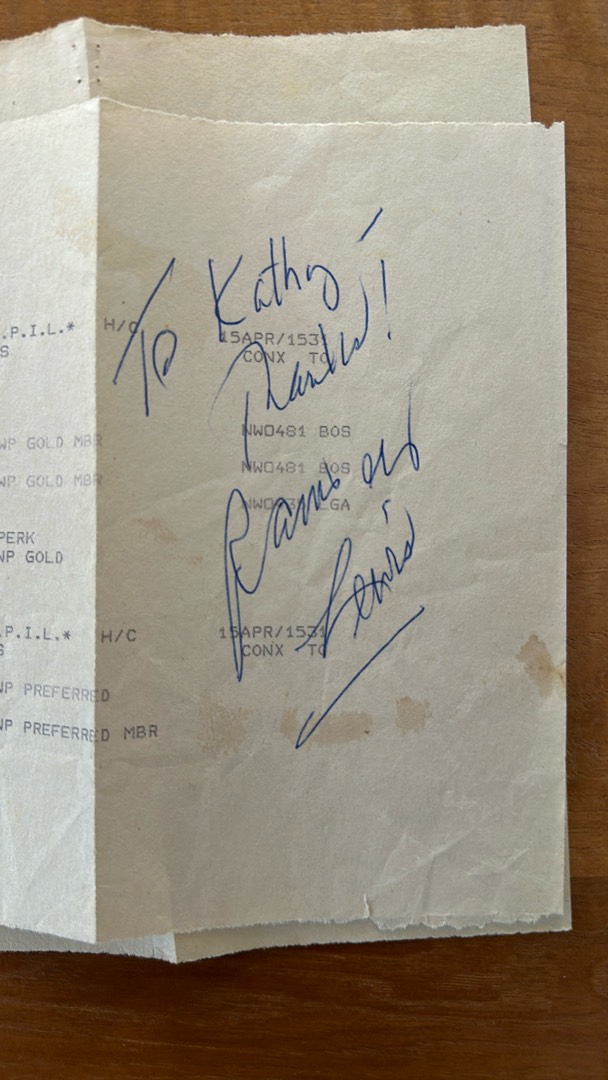 To Kathy –
Thanks!
Ramsey
Lewis
.P.I.L.* H/C 15APR/1531
S CONX TO
WP GOLD MBR NWO481 BOS
WP GOLD MBR NWO481 BOS
LGA
PERK
WP GOLD
.P.I.L.* H/C 15APR/1531
S CONX TO
WP PREFERRED
WP PREFERRED MBR